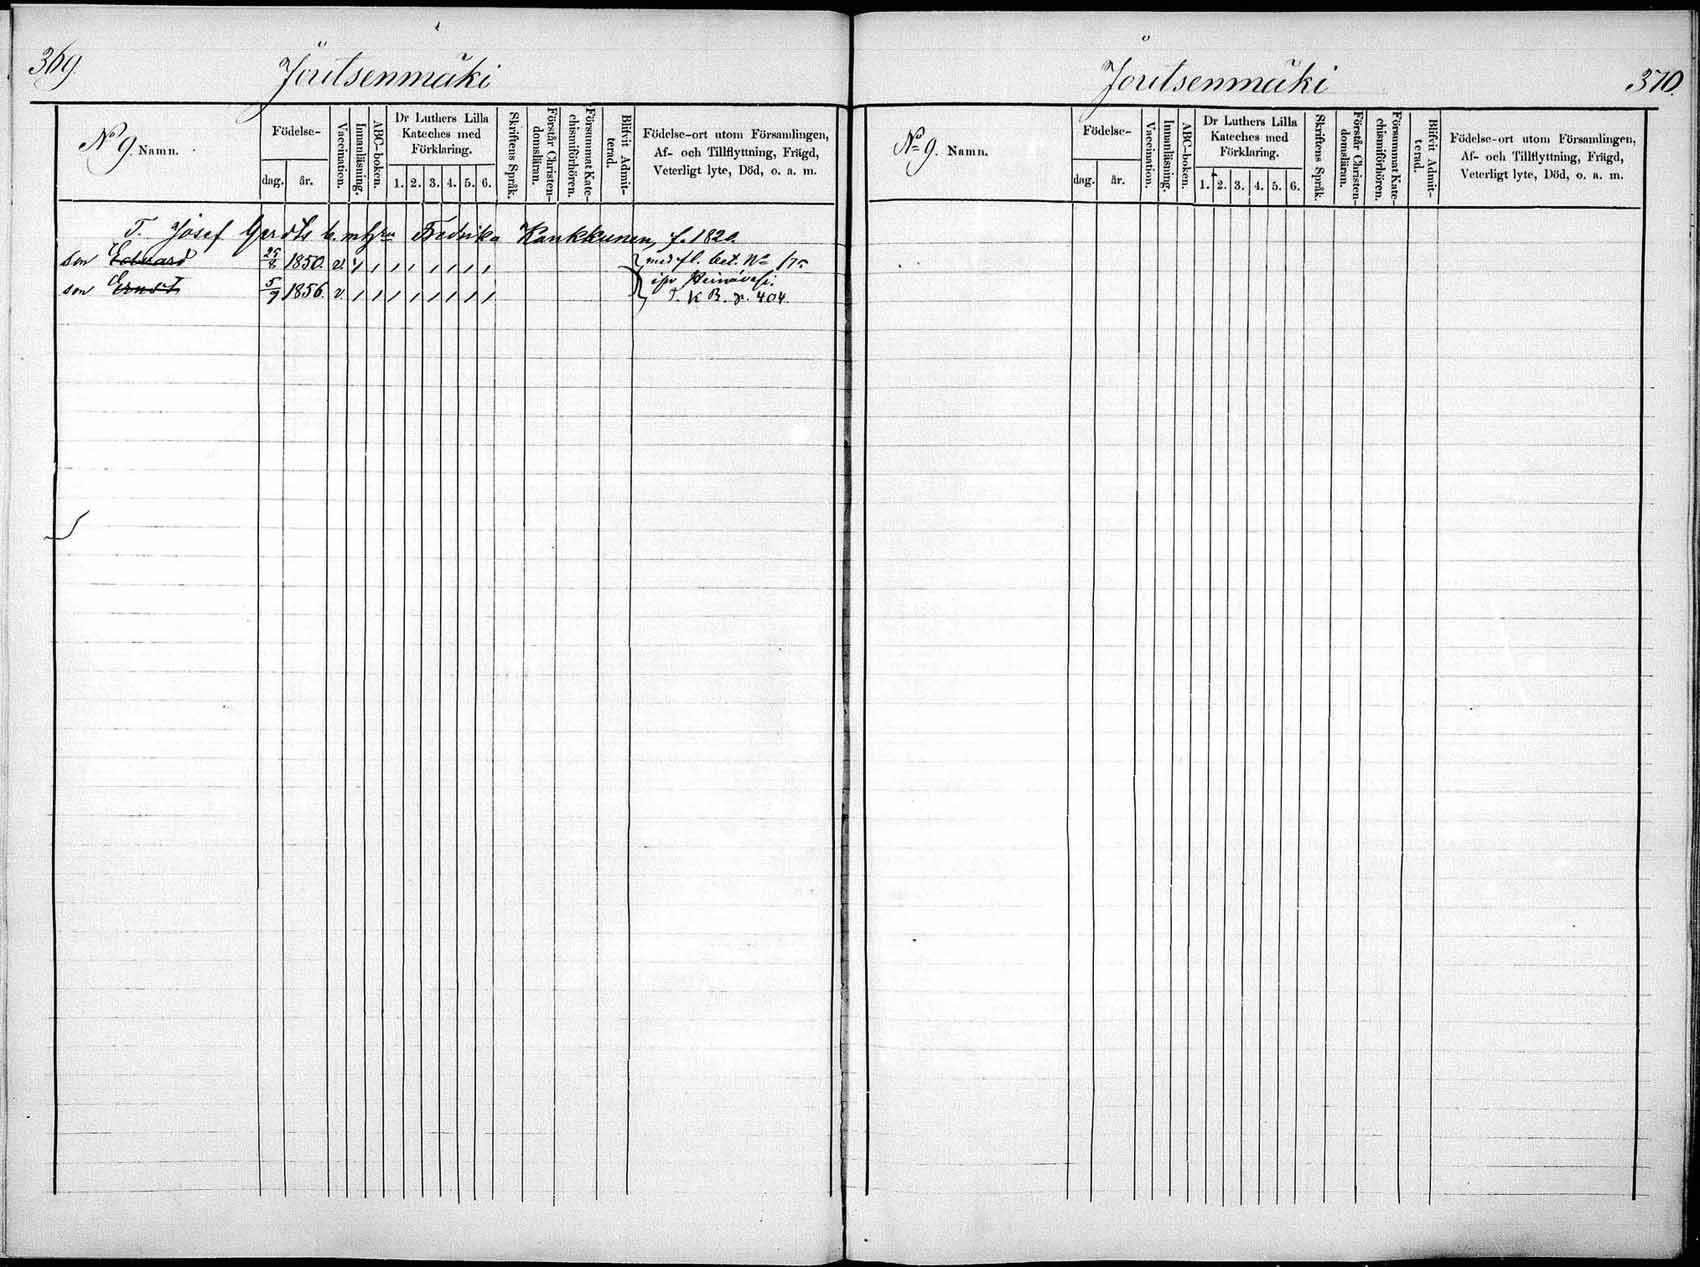 369.
Joutsenmäki
N° 9. Namn.
Födelse-
dag.
år.
Vaccination.
Innanläsning.
ABC-boken.
Dr Luthers Lilla
Kateches med
Förklaring.
1. 2. 3. 4. 5. 6.
Skriftens Språk.
Förstår Christen-
domsläran.
Försummat Kate-
chismiförhören.
Blifvit Admit-
terad.
Födelse-ort utom Församlingen,
Af- och Tillflyttning, Frägd,
Veterligt lyte, Död, o. a. m.
T. Josef Gerdts Fredrika Kaukkunen, f. 1820.
son Eduard 25/8 1850. v.
med fl. bet. N°
son Ernst 5/9 1856. v.
Heinävesi.
T. K B. p. 404.
Joutsenmäki
370.
N° 9. Namn.
Födelse-
dag.
år.
Vaccination.
Innanläsning.
ABC-boken.
Dr Luthers Lilla
Kateches med
Förklaring.
1. 2. 3. 4. 5. 6.
Skriftens Språk.
Förstår Christen-
domsläran.
Försummat Kate-
chismiförhören.
Blifvit Admit-
terad.
Födelse-ort utom Församlingen,
Af- och Tillflyttning, Frägd,
Veterligt lyte, Död, o. a. m.